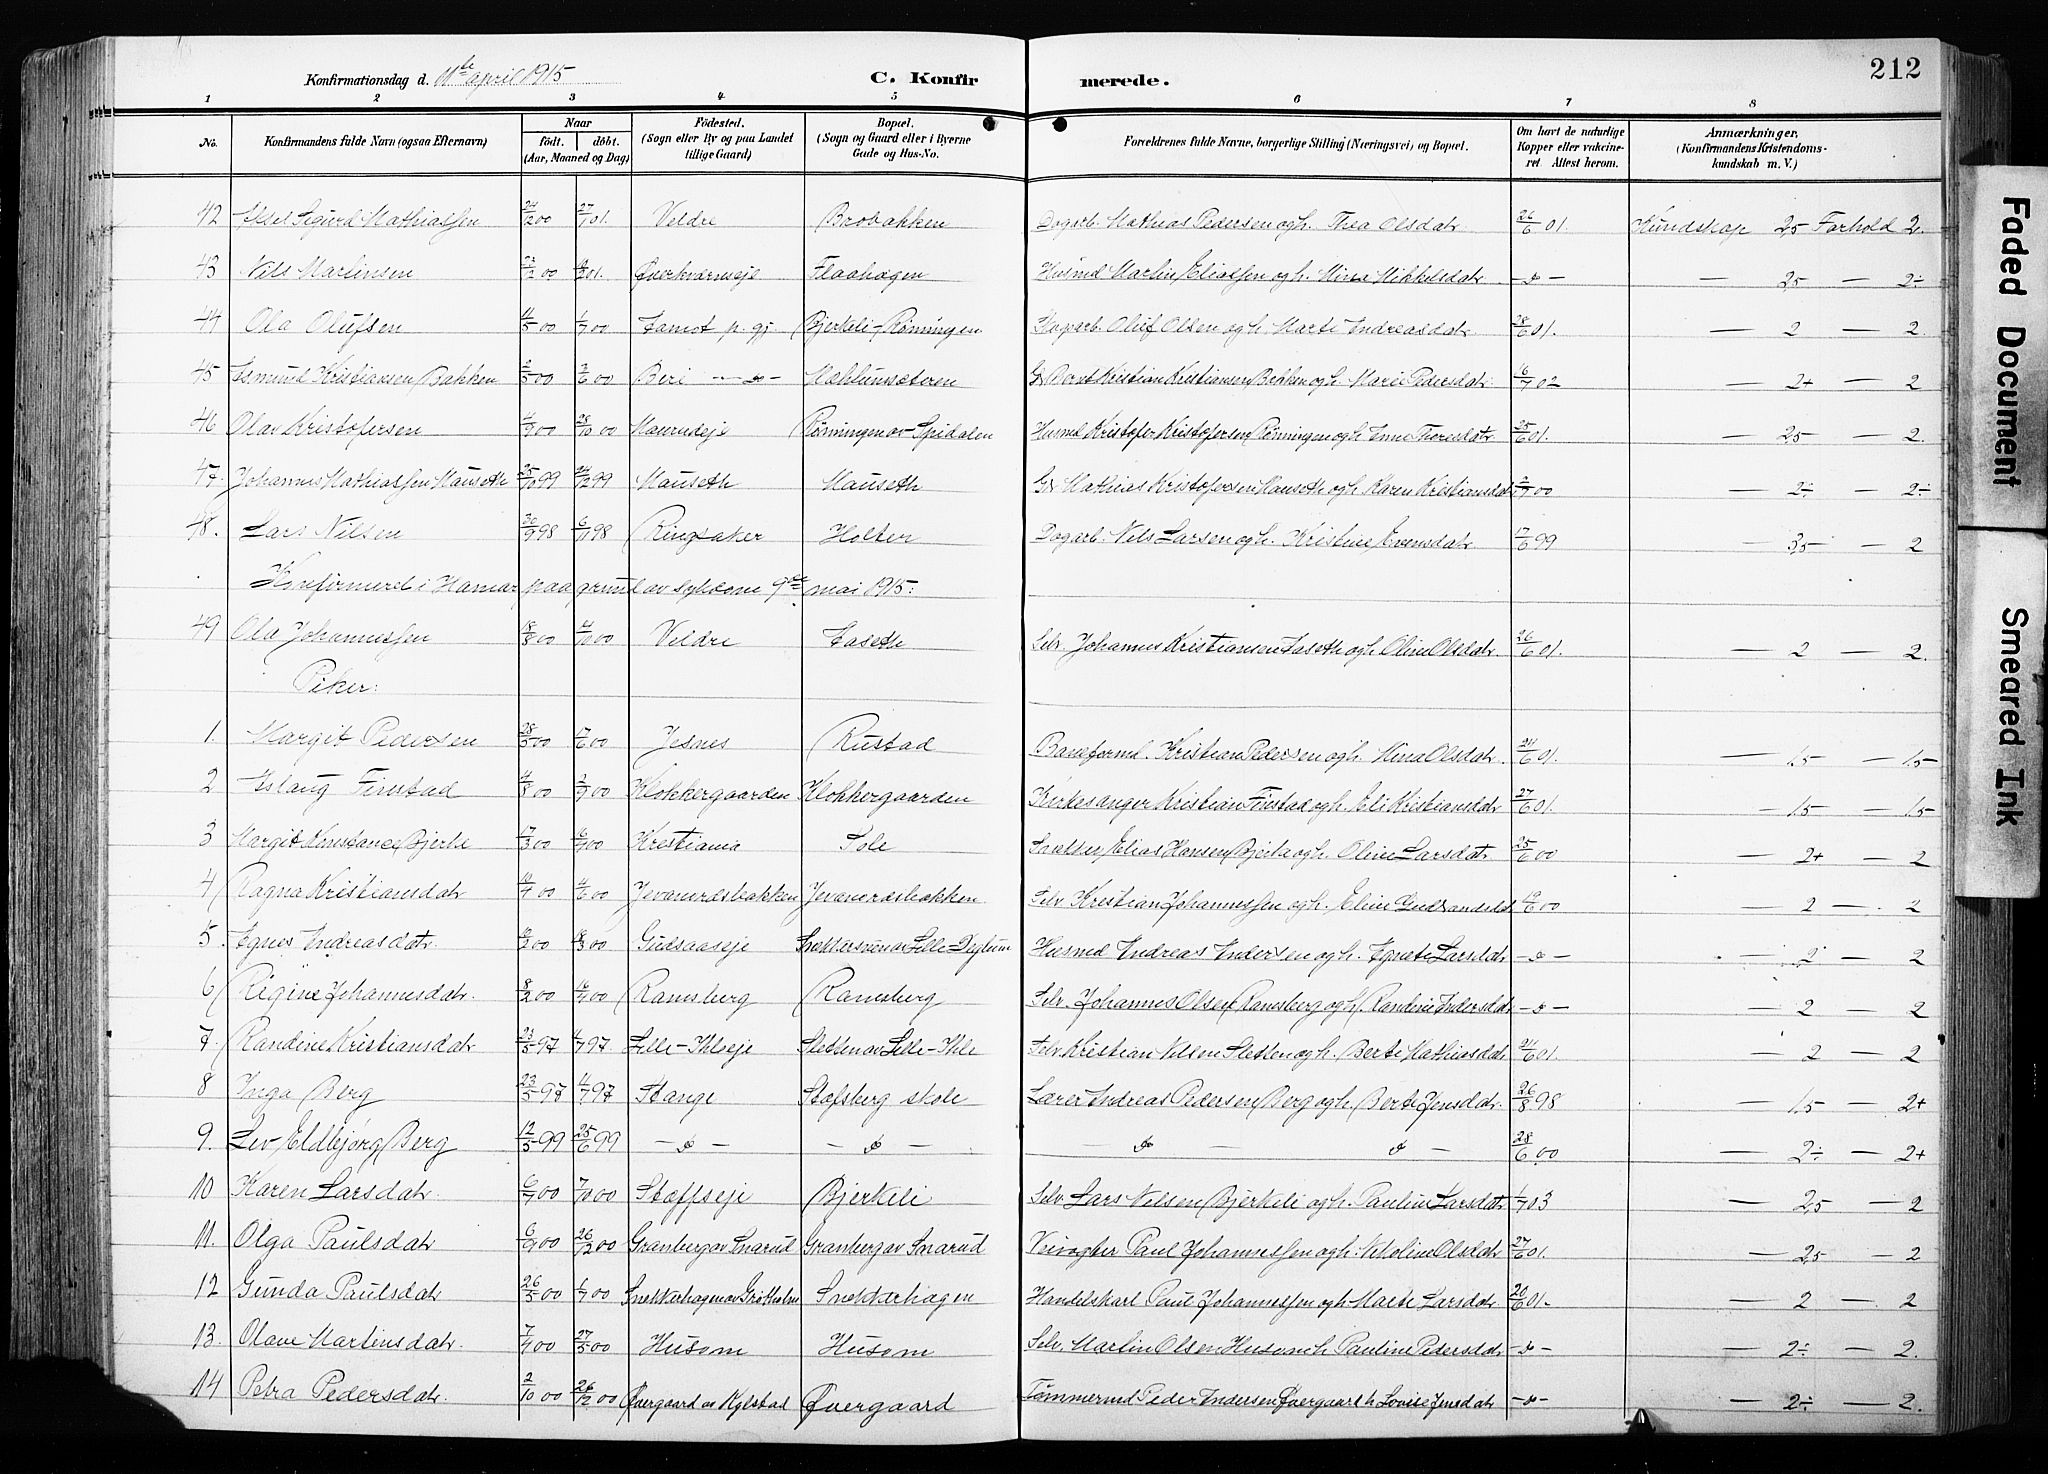 212
Konfirmationsdag d. 11te april 1915 C. Konfirmerede.
1 2 3 4 5 6 7 8
No. Konfirmandens fulde Navn (ogsaa Efternavn) Naar født. døbt. (Aar, Maaned og Dag) Fødested. (Sogn eller By og paa Landet tillige Gaard) Bopæl. (Sogn og Gaard eller i Byerne Gade og Hus-No. Forældrenes fulde Navne, borgerlige Stilling (Næringsvei) og Bopæl. Om havt de naturlige Kopper eller vakcineret Attest herom. Anmærkninger, (Konfirmandens Kristendomskundskab m. V.)
42 Aksel Sigurd Mathiassen 24/12 00 27/1 01. Veldre Brobakken Dagarb. Mathias Pedersen og h. Thea Olsdatr 26/6 01. Kundskap 2,5 Forhold 2.
43 Nils Martinsen 23/12 00 10/2 01. Øverkværneeje Flaahagen Husmd Martin Eliassen og h. Mina Mikkelsdatr - " - — 2,5 — 2÷
44 Ola Olufsen 11/5 00 1/7 00 Aamot p. gj. Bjerkeli-Rønningen Dagarb. Oluf Olsen og h. Marte Andreasdatr 28/6 01. — 2 — 2.
45 Asmund Kristiansen Bakken 2/5 00 3/6 00 Biri - " - Mæhlumsæteren Gb. Bernt Kristian Kristiansen Bakken og h. Marie Pedersdatr. 16/7 02 — 2+ — 2
46 Olav Kristofersen 4/9 00 28/10 00 Maurudeje Rønningen av Spidalen Husmd Kristofer Kristofersen Rønningen og h. Enne Thoresdatr 25/6 01. — 2,5 — 2.
47. Johannes Mathiassen Mauseth 25/10 99 24/12 99 Mauseth Mauseth Gb. Mathias Kristofersen Mauseth og h. Karen Kristiansdatr 2/7 00 — 2÷ — 2÷
48. Lars Nilsen 30/9 98 6/11 98 Ringsaker Holter Dagarb. Nils Larsen og h. Kristine Evensdatr 17/6 99 — 3,5 — 2
Konfirmeret i Hamar paa grund av sykdom 9de mai 1915:
49 Ola Johannessen 18/8 00 4/10 00 Veldre Aaseth Selv. Johannes Kristiansen Aaseth og h. Oline Olsdatr. 26/6 01. — 2 — 2.
Piker:
1. Margit Pedersen 28/5 00 17/6 00 Jesnes Rustad Baneformd. Kristian Pedersen og h. Mina Olsdatr. 24/6 01. — 1,5 — 1,5
2 Aslaug Finstad 4/8 00 2/9 00 Klokkergaarden Klokkergaarden Kirkesanger Kristian Finstad og h. Eli Kristiansdatr 27/6 01. — 1,5 — 1,5
3 Margit Konstance Bjerke 17/3 00 16/4 00 Kristiania Sole Snekker Elias Hansen Bjerke og h. Oline Larsdatr 25/6 00 — 2+ — 2
4 Ragna Kristiansdatr 10/4 00 4/6 00 Jevanordsbakken Jevanordsbakken Selv. Kristian Johannessen og h. Eline Gudbrandsdatr 19/6 00 — 2 — 2
5. Agnes Andreasdatr. 10/2 00 18/3 00 Gudsaaseje Snekkerstuen av Lille-Deglum Husmd Andreas Andersen og h. Agnete Larsdatr - " - — 2 — 2
6 Ragine Johannesdatr. 8/2 00 16/4 00 Ramsberg Ramsberg Selv. Johannes Olsen Ramsberg og h. Randine Andersdatr - " - — 2 — 2
7. Randine Kristiansdatr 23/5 97 4/7 97 Lille-Ihleeje Sletten av Lille-Ihle Selv. Kristian Nilsen Sletten og h. Berte Mathiasdatr 24/6 01. — 2 — 2
8 Inga Berg 23/5 97 11/7 97 Stange Stafsberg skole Lærer Andreas Pedersen Berg og h. Berte Jensdatr. 26/8 98 — 1,5 — 2+
9. Liv Eldbjørg Berg 12/5 99 25/6 99 — " — — " — — " — " — 28/6 00 — 2÷ — 2+
10 Karen Larsdatr. 6/9 00 7/10 00 Staffseje Bjerkeli Selv. Lars Nilsen Bjerkeli og h. Pauline Larsdatr 1/7 03 — 2,5 — 2
11. Olga Paulsdatr 6/9 00 26/12 00 Granberg av Snarud Granberg av Snarud Veivogter Paul Johannessen og h. Oline Olsdatr 27/6 01. — 2,5 — 2
12 Gunda Paulsdatr 26/5 00 1/7 00 Snekkerhagen av Grøtholm Snekkerhagen Handelskarl Paul Johannessen og h. Marte Larsdatr 26/6 01. — 2 — 2
13. Olave Martinsdatr. 7/4 00 27/5 00 Husom Husom Selv. Martin Olsen Husom h. Pauline Pedersdatr - " - — 2÷ — 2.
14 Petra Pedersdatr. 2/10 00 26/12 00 Øvergaard av Kylstad Øvergaard Tømmermd Peder Andersen Øvergaard h. Lovise Jensdatr - " - — 2÷ — 2.
Faded Document
Smeared Ink